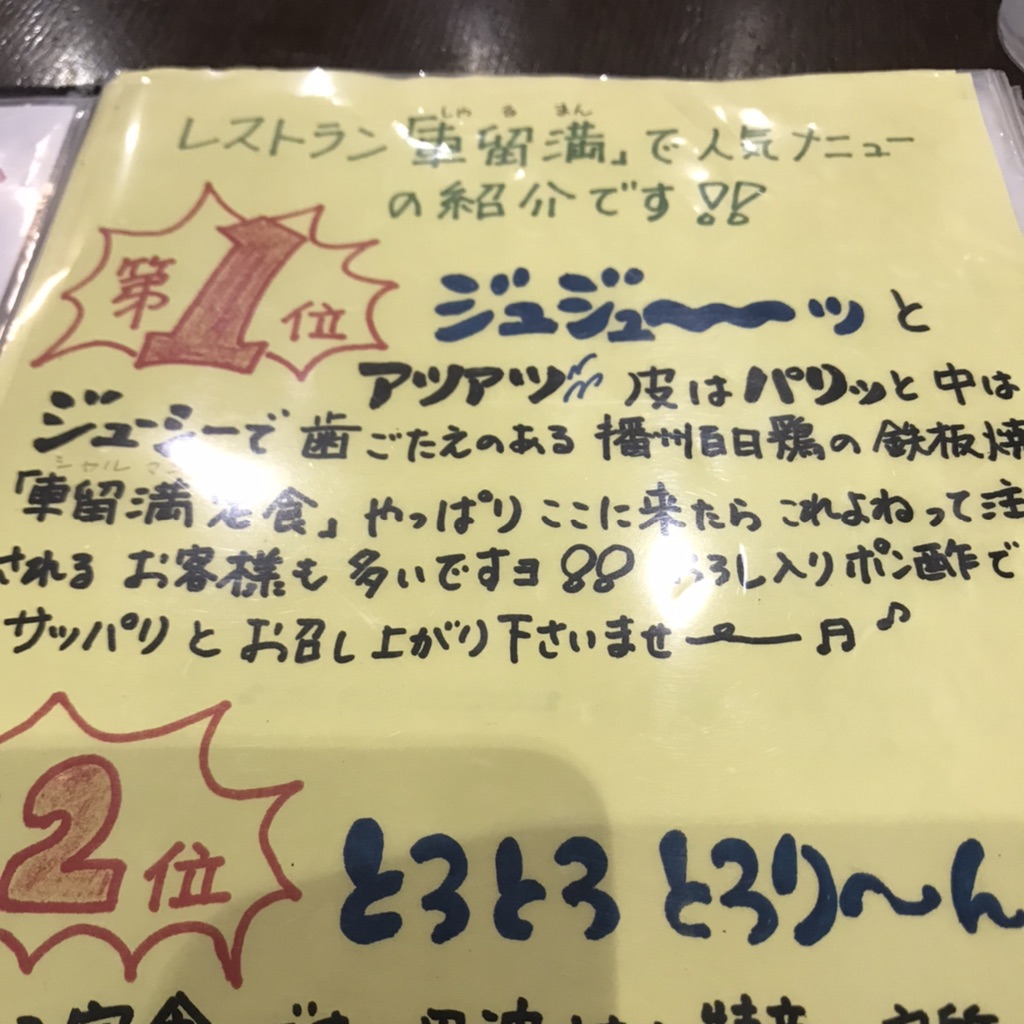 しゃ る まん
レストラン「車留満」で人気メニュー
の紹介です!!
第1位
ジュジュ〜〜ッと
アツアツ 皮はパリッと中は
ジューシーで歯ごたえのある播州百日鶏の鉄板焼
シャルマン
「車留満定食」やっぱりここに来たらこれよねって注
されるお客様も多いですヨ!! おろし入りポン酢で
サッパリとお召し上がり下さいませ〜♬♪
2位
とろとろとろり〜ん
定食